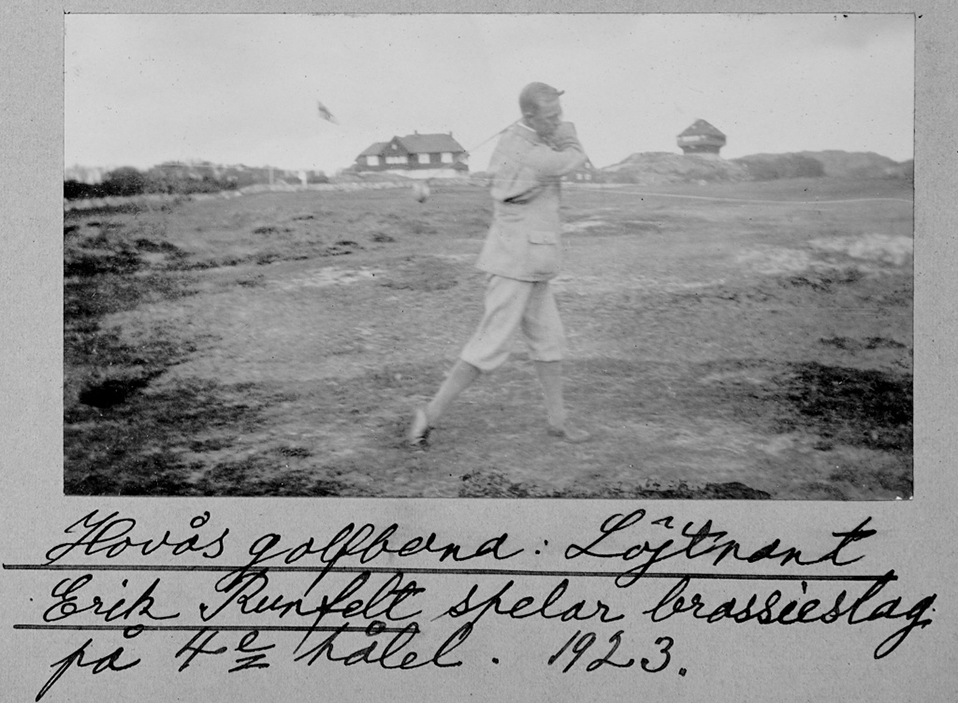 Hovås golfbana: Löjtnant
Erik Runfelt spelar brassieslag
på 4e hålet. 1923.